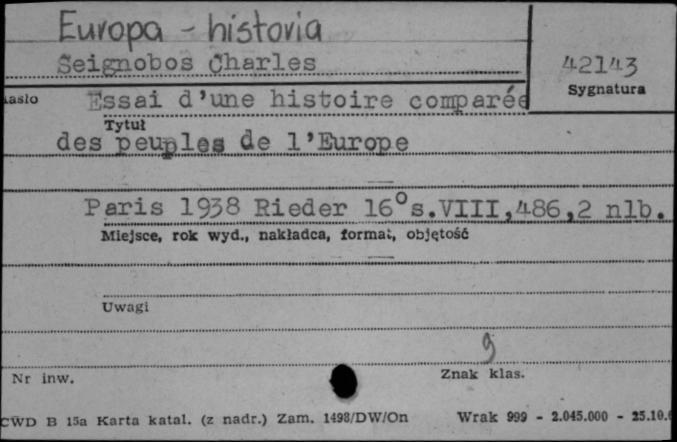 Europa - historia
Seignobos Charles
42143
Sygnatura
Essai d'une histoire comparée
Tytuł
des peuples de l'Europe
Paris 1938 Rieder 16° s.VIII,486,2 nlb.
Miejsce, rok wyd., nakładca, format, objętość
Uwagi
9
Nr inw.
Znak klas.
CWD B 15a Karta katal. (z nadr.) Zam. 1498/DW/On Wrak 999 - 2.045.000 - 25.10.